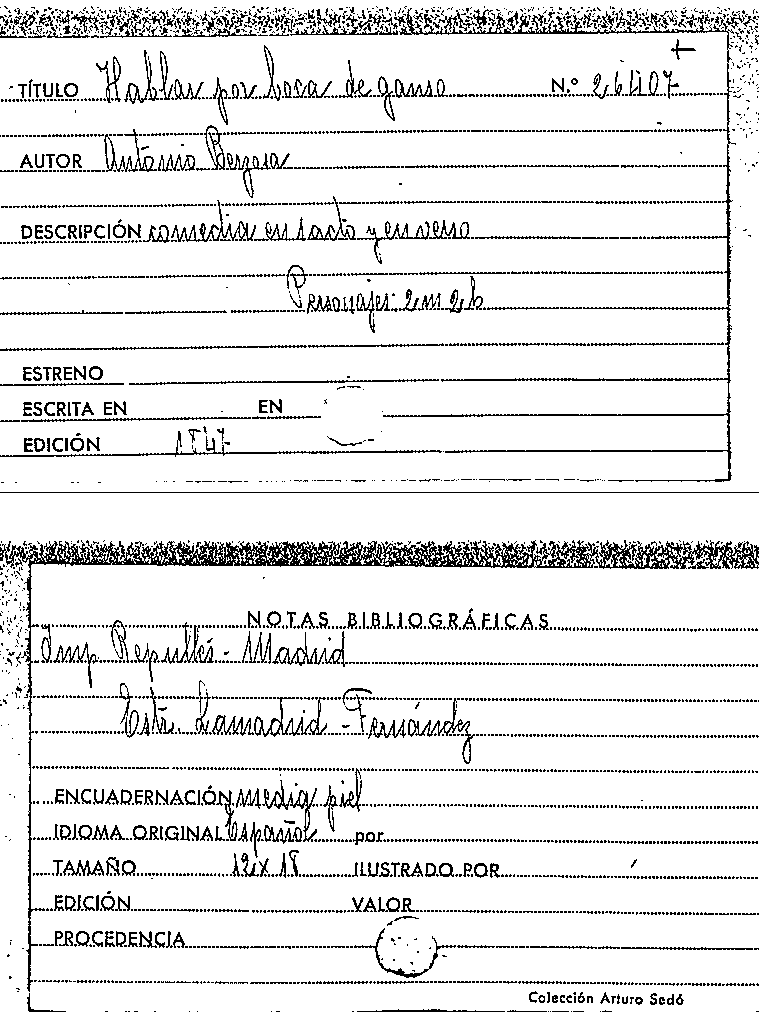 TÍTULO Hablar por boca de ganso N.º 26407
AUTOR Antonio Berzosa
DESCRIPCIÓN comedia en 1 acto y en verso
Personajes: 2 m 2 h
ESTRENO
ESCRITA EN EN
EDICIÓN 1847
NOTAS BIBLIOGRÁFICAS
Imp Repullés - Madrid
Estr. Lamadrid - Fernández
ENCUADERNACIÓN media piel
IDIOMA ORIGINAL Español por
TAMAÑO 12 x 18 ILUSTRADO POR
EDICIÓN VALOR
PROCEDENCIA
Colección Arturo Sedó